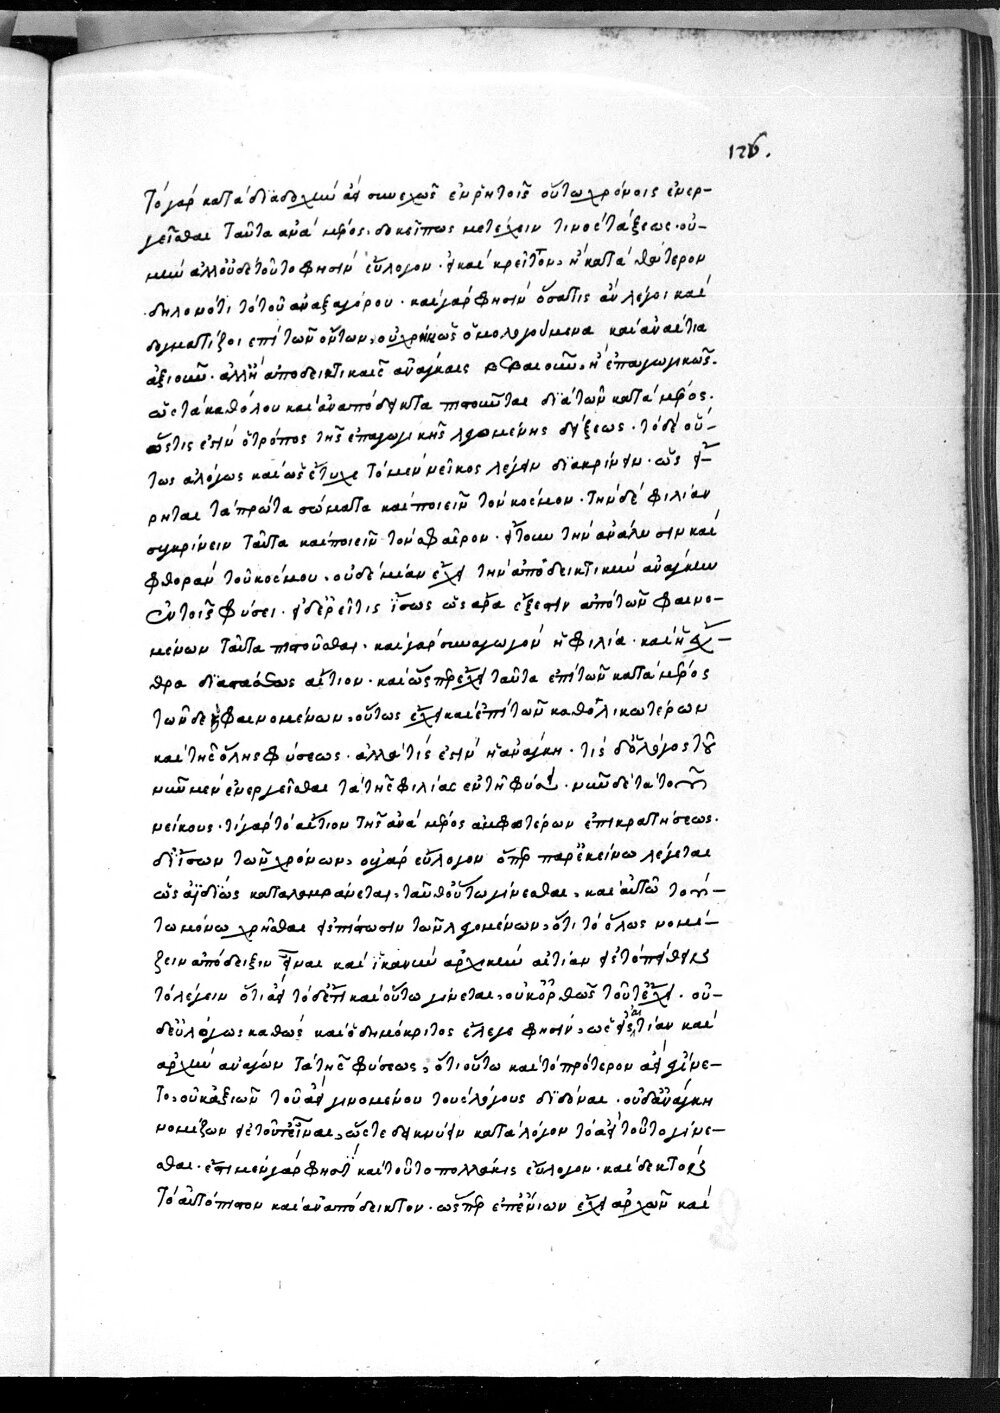 126.
τὸ γὰρ κατὰ διαδοχὴν ἀεὶ συνεχῶς ἐν ῥητοῖς οὕτω χρόνοις ἐνερ-
γεῖσθαι ταῦτα ἀνὰ μέρος. δοκεῖ πως μετέχειν τινος τάξεως. οὐ-
μὴν ἀλλ' οὐδὲ τοῦτο φησὶν εὔλογον. καὶ κρεῖττον ἢ κατὰ θάτερον
δηλονότι τὸ τοῦ ἀναξαγόρου. καὶ γὰρ φησὶν ὅστις ἂν λέγοι καὶ
δογματίζοι ἐπὶ τῶν ὄντων, οὐ χρὴ ὡς ὁμολογούμενα καὶ ἀναίτια
ἀξιοῦν. ἀλλ' ἢ ἀποδεικτικαῖς ἀνάγκαις βεβαιοῦν, ἢ ἐπαγωγικῶς.
ὥστε τὰ καθόλου καὶ ἀναπόδεικτα πιστοῦται διὰ τῶν κατὰ μέρος.
ὥς τις ἐστὶν ὁ τρόπος τῆς ἐπαγωγικῆς λεγομένης δείξεως. τὸ δὲ οὕ-
τως ἀλόγως καὶ ὡς ἔτυχε τὸ μὲν νεῖκος λέγειν διακρίνειν. ὡς εἴ-
ρηται τὰ πρῶτα σώματα καὶ ποιεῖν τὸν κόσμον. τὴν δὲ φιλίαν
συγκρίνειν ταῦτα καὶ ποιεῖν τὸν σφαῖρον. ἤτοι τὴν ἀνάλυσιν καὶ
φθορὰν τοῦ κόσμου, οὐδεμίαν ἔχει τὴν ἀποδεικτικὴν ἀνάγκην
ἐν τοῖς φύσει. εἰ δ' ἐρεῖ τις ἴσως ὡς ἄρα ἔξεστιν ἀπὸ τῶν φαινο-
μένων ταῦτα πιστοῦσθαι. καὶ γὰρ συναγωγὸν ἡ φιλία. καὶ ἡ ἔχ-
θρα διαστάσεως αἴτιον. καὶ ὥσπερ ἔχει ταῦτα ἐπὶ τῶν κατὰ μέρος
τῶνδε φαινομένων, οὕτως ἔχει καὶ ἐπὶ τῶν καθολικωτέρων
καὶ τῆς ὅλης φύσεως. ἀλλὰ τίς ἐστὶν ἡ ἀνάγκη. τίς δ' ὁ λόγος τοῦ
νῦν μὲν ἐνεργεῖσθαι τὰ τῆς φιλίας ἐν τῇ φύσει. νῦν δὲ τὰ τοῦ
νείκους. τί γὰρ τὸ αἴτιον τῆς ἀνὰ μέρος ἀμφοτέρων ἐπικρατήσεως.
δι' ἴσων τῶν χρόνων, οὐ γὰρ εὔλογον ὅπερ παρ' ἐκείνω λέγεται
ὡς ἀϊδίως καταλαμβάνεται, ταῦθ' οὕτω γίνεσθαι, καὶ αὐτῶ τού-
τω μόνω χρῆσθαι εἰς πίστωσιν τῶν λεγομένων, ὅτι τὸ ὅλως νομί-
ζειν ἀπόδειξιν εἶναι καὶ ἱκανὴν ἀρχικὴν αἰτίαν
τὸ λέγειν ὅτι ἀεὶ τόδε τι καὶ οὕτω γίνεται, οὐκ ὀρθῶς τοῦτ' ἔχει. οὐ-
δ' εὐλόγως καθὼς καὶ ὁ δημόκριτος ἔλεγε φησίν, ὡς εἰς αἰτίαν καὶ
ἀρχὴν ἀνάγων τὰ τῆς φύσεως, ὅτι οὕτω καὶ τὸ πρότερον ἀεὶ ἐγίνε-
το, οὐκ ἀξιῶν τοῦ ἀεὶ γινομένου τοὺς λόγους διδόναι. οὐδ' ἀνάγκη
νομίζων τοῦτ' εἶναι, ὥστε δεικνύειν κατὰ λόγον τὸ ἀεὶ τοῦτο γίνε-
σθαι. ἐπὶ μὲν γὰρ φησι καὶ τοῦτο πολλάκις εὔλογον. καὶ δεκτὸν
τὸ αὐτόπιστον καὶ ἀναπόδεικτον. ὥσπερ ἐπ' ἐνίων ἔχει ἀρχῶν καὶ